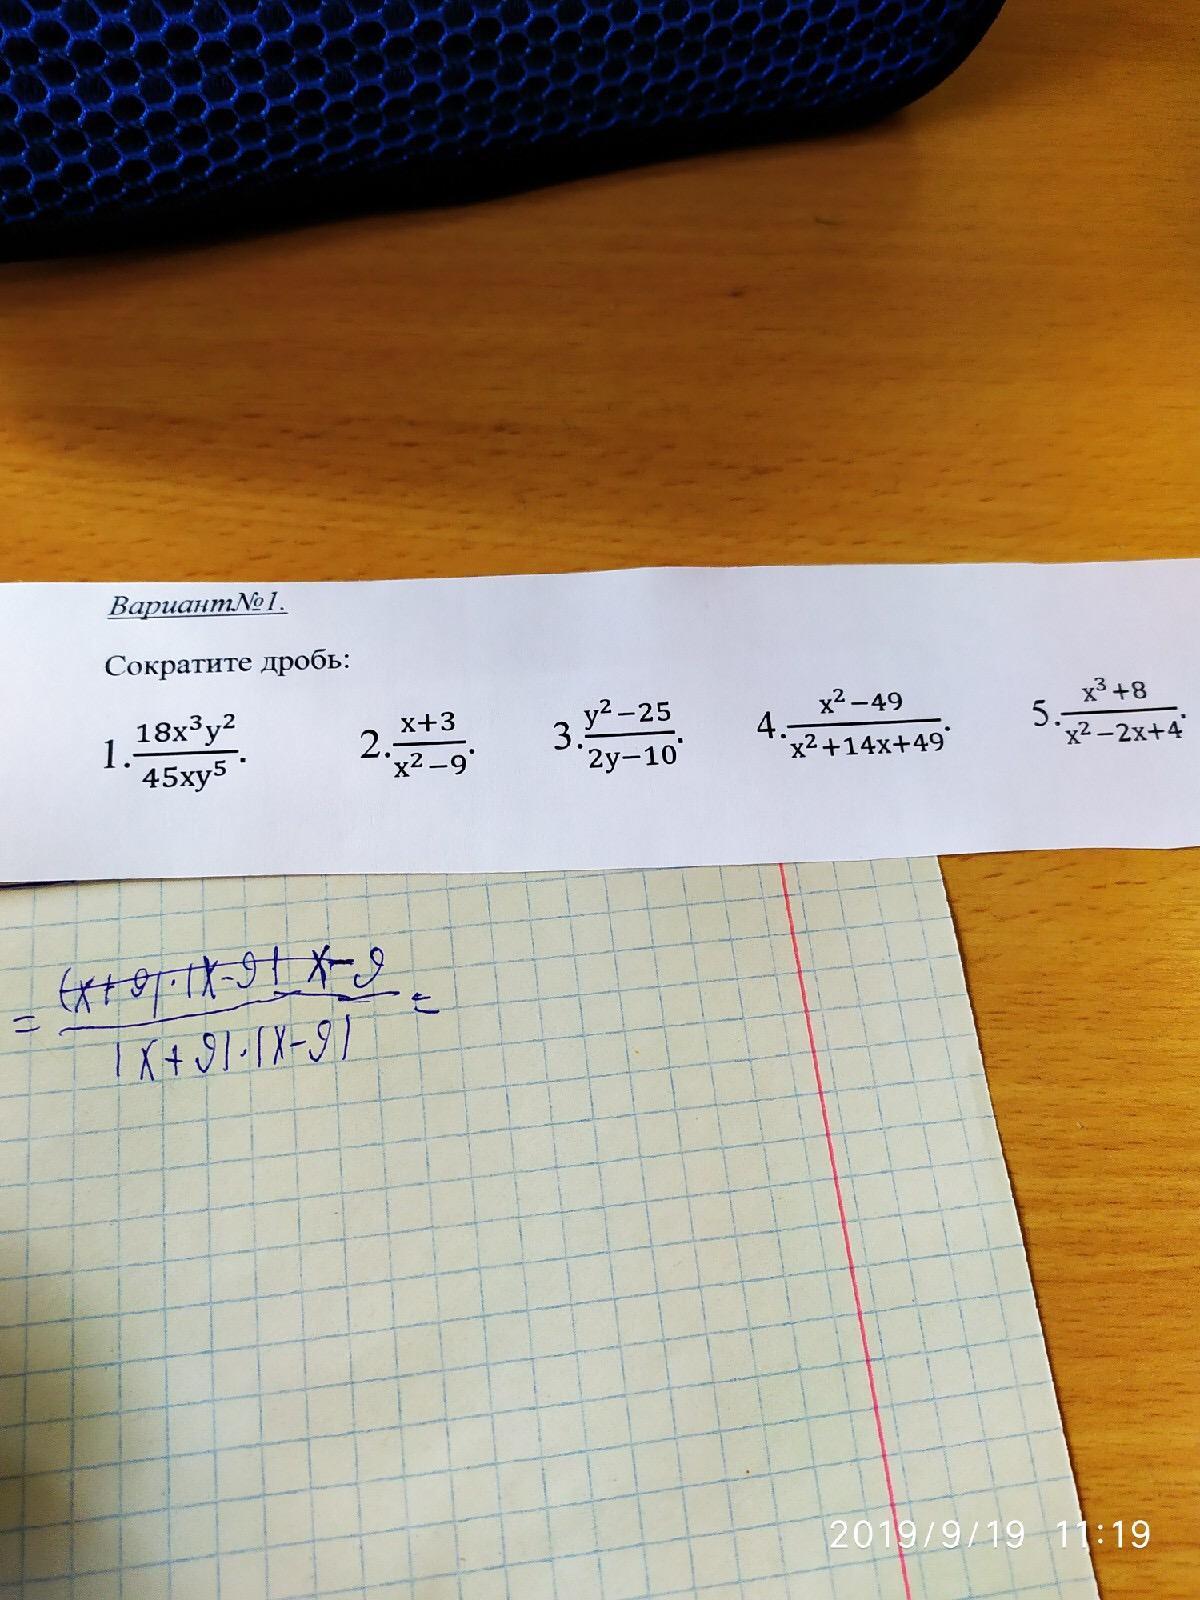 Вариант№1.
Сократите дробь:
1. 18x³y²/45xy⁵. 2. x+3/x²−9. 3. y²−25/2y−10. 4. x²−49/x²+14x+49. 5. x³+8/x²−2x+4.
= (x+9)·(x-9) x-9 =
(x+9)·(x-9)
2019/9/19 11:19